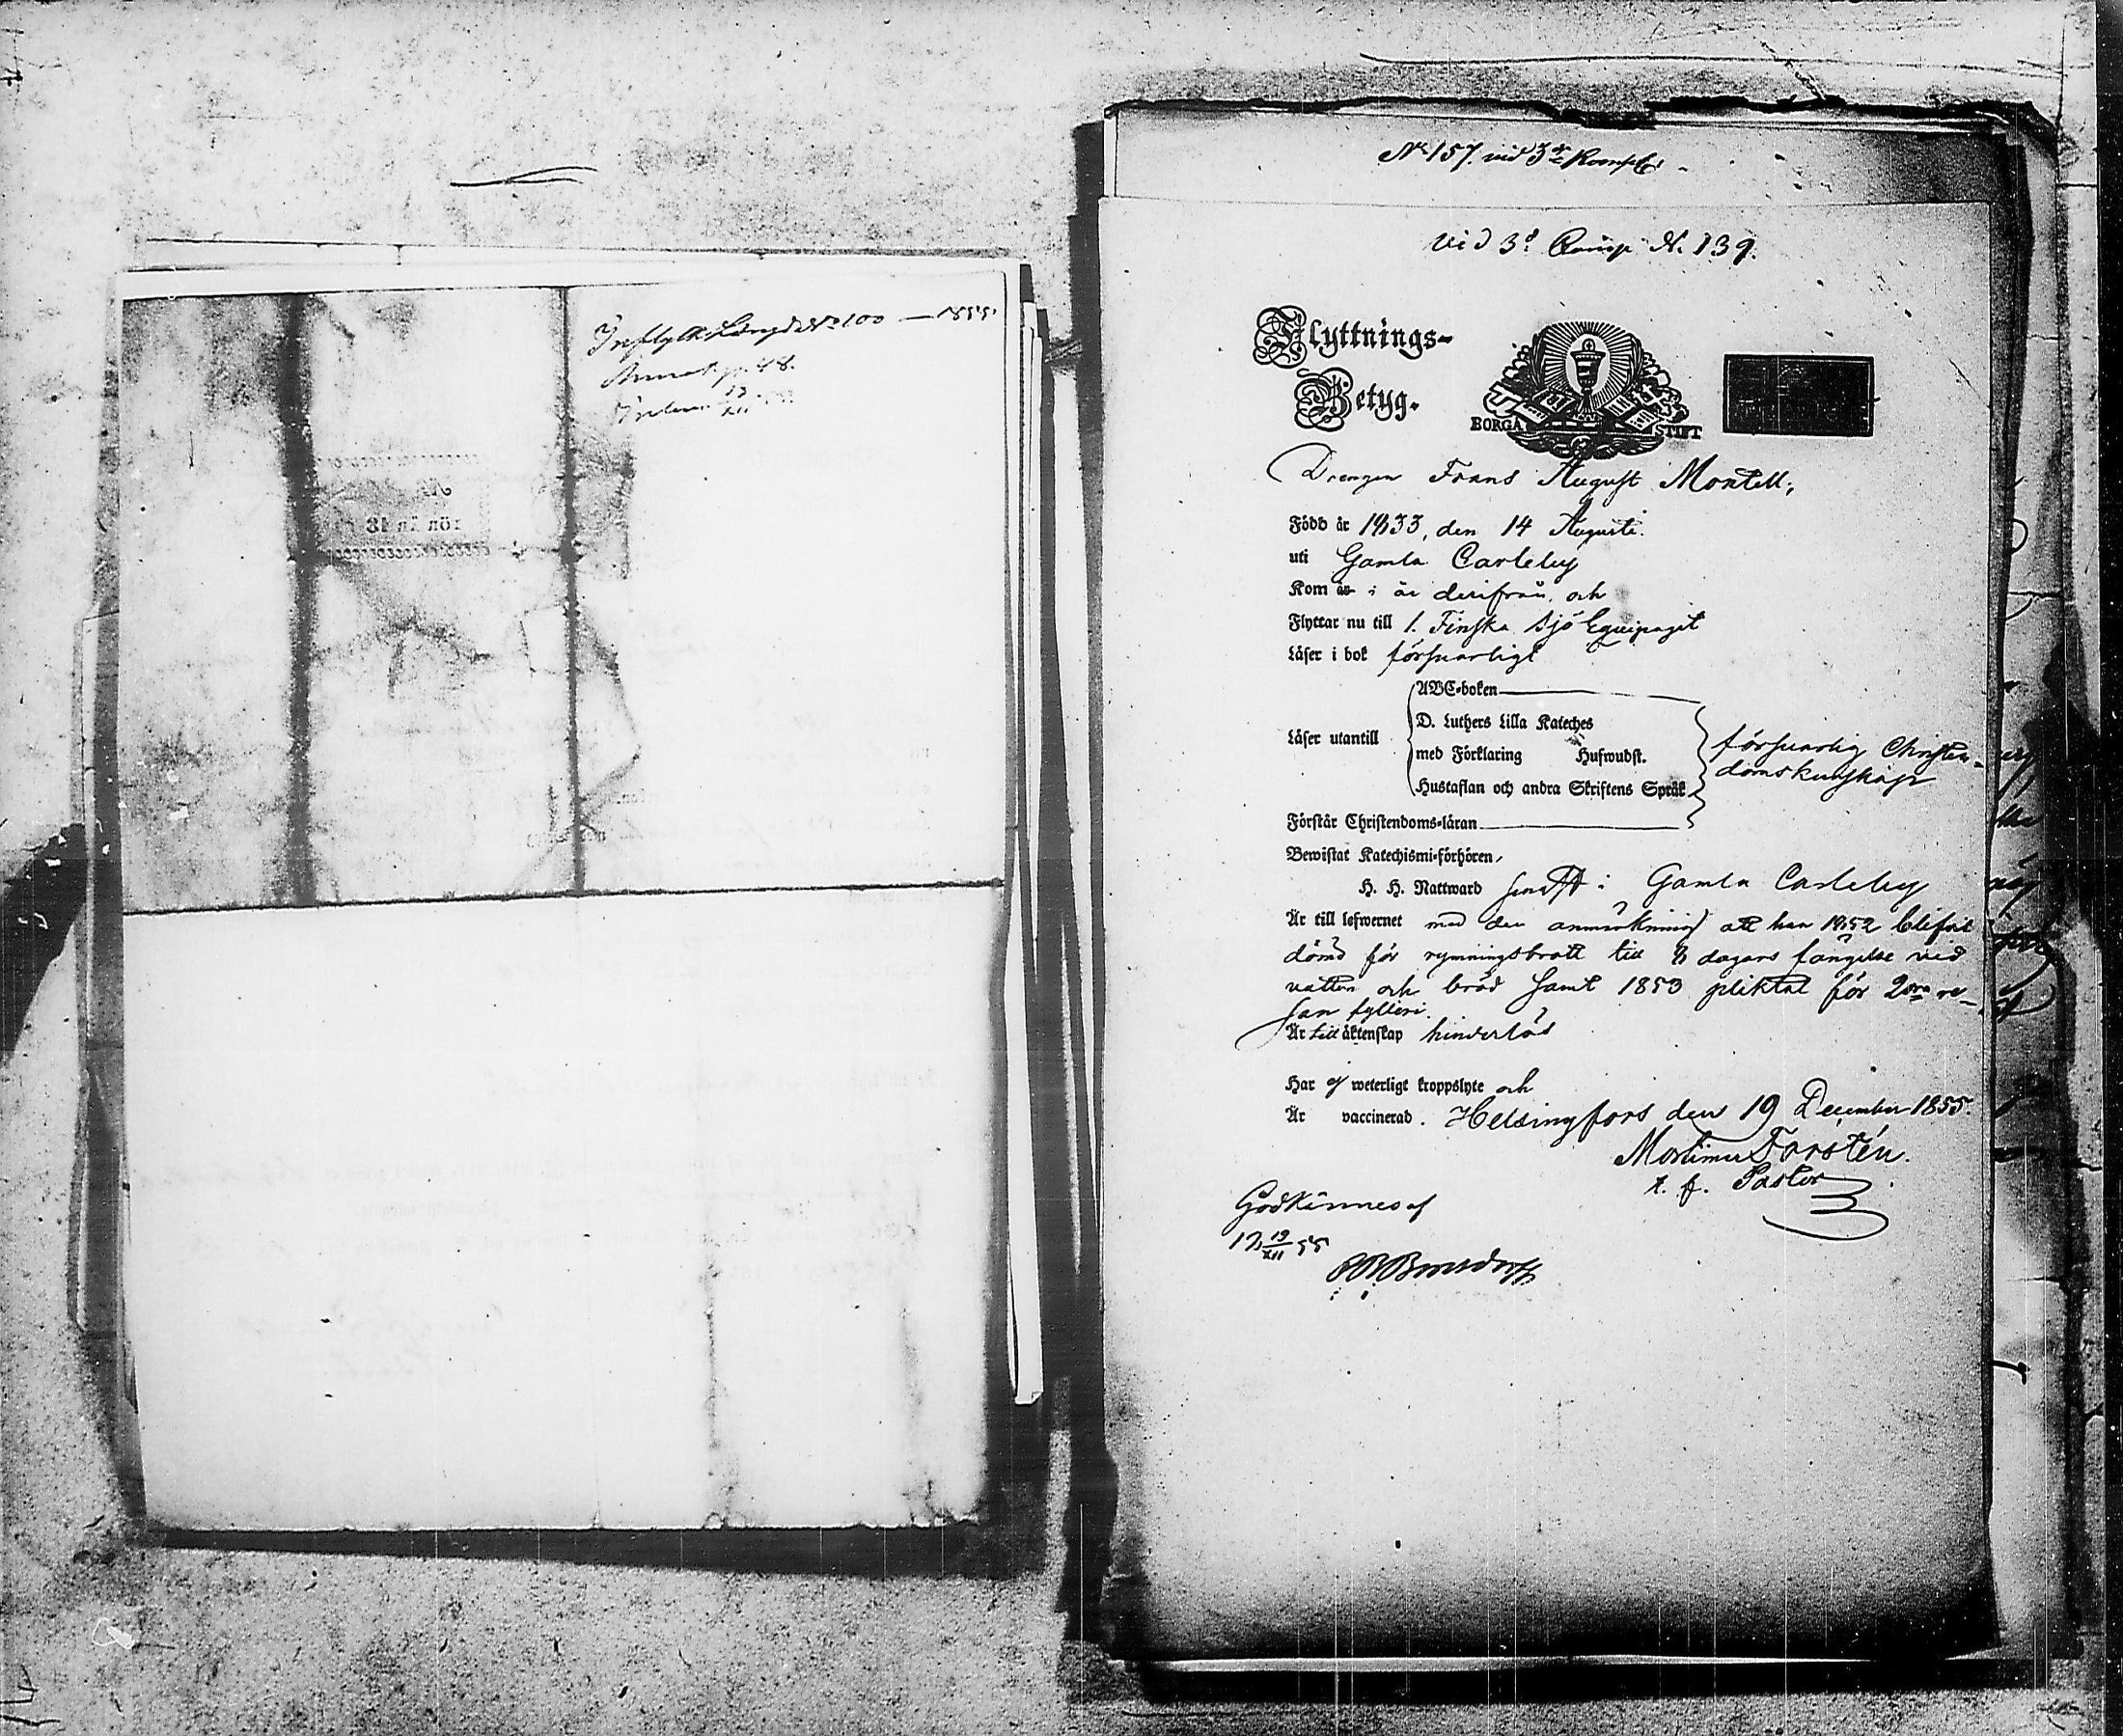 Inflyttn Längd № 100 — 1855.
48.
№ 157. vid 3e Komp.
vid 3e Comp N. 139.
Flyttnings-
Betyg.
BORGÅ STIFT
Drengen Frans August Montell,
Född år 1833, den 14 Augusti.
uti Gamla Carleby
Kom år i år derifrån, och
Flyttar nu till 1. Finska Sjö Equipaget
Läser i bok försvarligt
Läser utantill
ABC-boken
D. Luthers Lilla Kateches
med Förklaring Hufwudst.
Hustaflan och andra Skriftens Språk
försvarlig Christen-
domskunskap
Förstår Christendoms-läran
Bewistat Katechismi-förhören,
H. H. Nattward sendst i Gamla Carleby
Är till lefwernet med den anmärkning att han 1852 blifvit
dömd för rymningsbrott till 8 dagars fängelse vid
vatten och bröd samt 1853 pliktat för 2dra re-
san fylleri.
Är till äktenskap hinderlös
Har ej weterligt kroppslyte och
Är vaccinerad. Helsingfors den 19 December 1855.
Mortimer Forstén.
t. f. Pastor
Godkännes af
19/XII 55